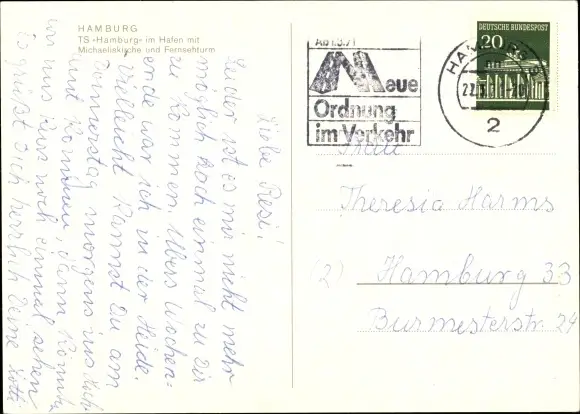 HAMBURG
TS »Hamburg« im Hafen mit
Michaeliskirche und Fernsehturm
Liebe Resi!
Leider ist es mir nicht mehr
möglich noch einmal zu Dir
zu kommen. Übers Wochen=
ende war ich in der Heide.
Vielleicht kannst Du am
Donnerstag morgens ins
kommen, dann können
wir uns kurz noch einmal sehen
Es grüßt Dich herzlich Deine Lotti
Ab 1.3.71
Neue
Ordnung
im Verkehr
HAMBURG
2
DEUTSCHE BUNDESPOST
20
Theresia Harms
(2) Hamburg 33
Burmesterstr. 24